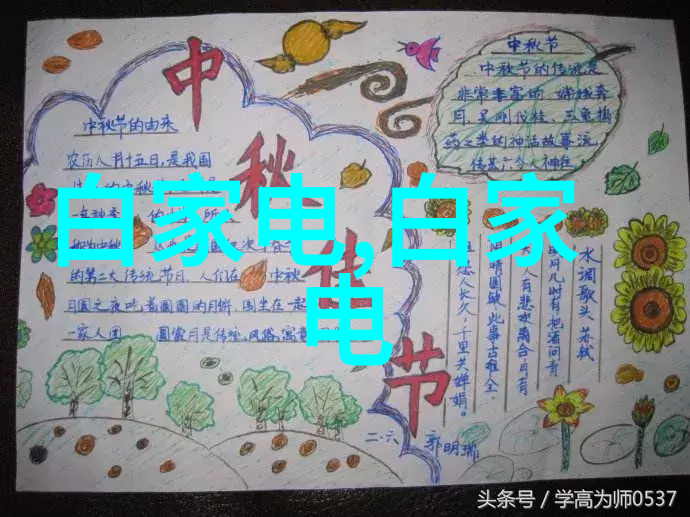 中秋佳节
白家电,白家
电
中秋节的由来
农历八月十五日,是我国
的第二大传统节日。人们在 中秋
月圆之夜吃着圆圆的月饼,围坐在一起
一家人团 圆赏月是传统风俗,寓意
中秋节
中秋节的传说是
非常丰富的,嫦娥奔
月,吴刚伐桂,玉兔捣
药之类的神话故事流
水调歌头 苏轼
月几时有把酒问青
人有悲欢离合月有
阴晴圆缺此事古难全。
愿人长久,千里共婵娟。
二·六 郭明瑞
头条号 / 学高为师0537